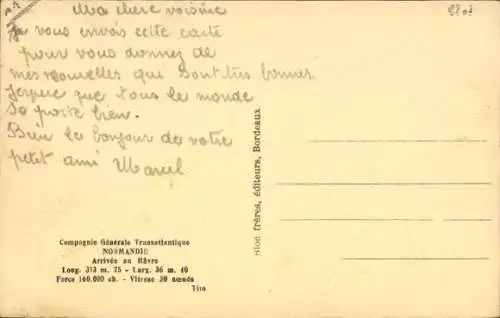 Ma chere voisine
Je vous envois cette carte
pour vous donnez de
mes nouvelles que sont tres bonnes
J'espere que tous le monde
se porte bien.
Bien le bonjour de votre
petit ami Marcel
Bloc frères, éditeurs, Bordeaux
Compagnie Générale Transatlantique
NORMANDIE
Arrivée au Hâvre
Long. 313 m. 75 - Larg. 36 m. 40
Force 160.000 ch. - Vitesse 30 nœuds
Tito